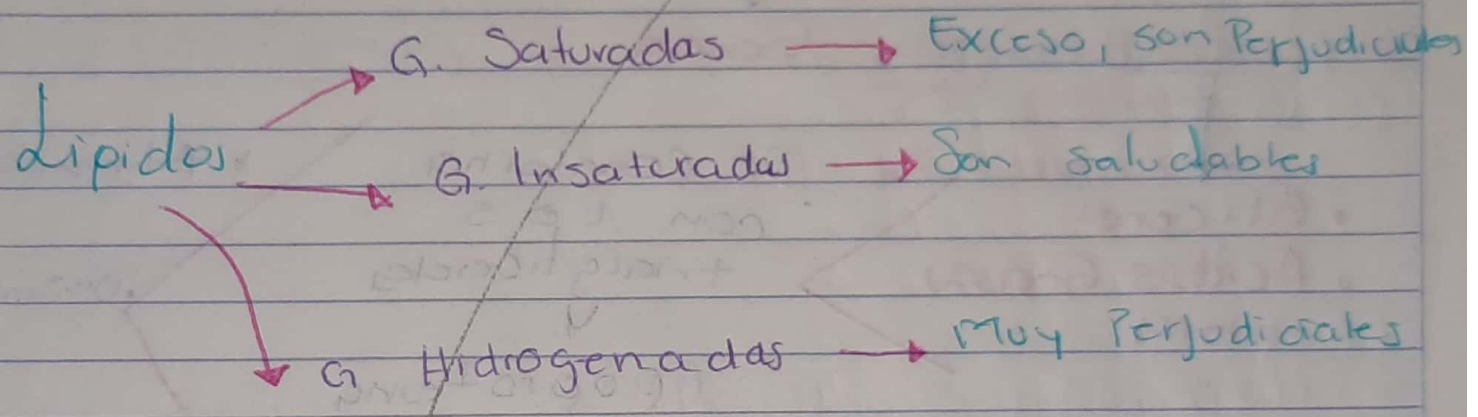 G. Saturadas → Exceso, son Perjudiciales
Lipidos
G. Insaturadas → Son saludables
G. Hidrogenadas → Muy Perjudiciales